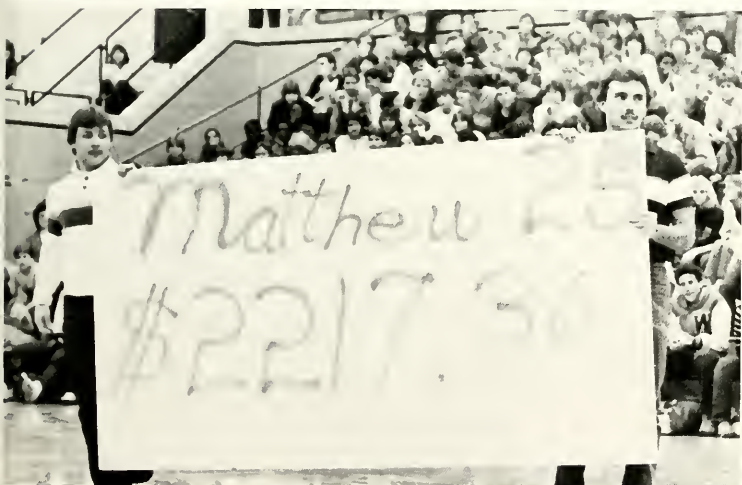 Matthew 25
$2217.
W